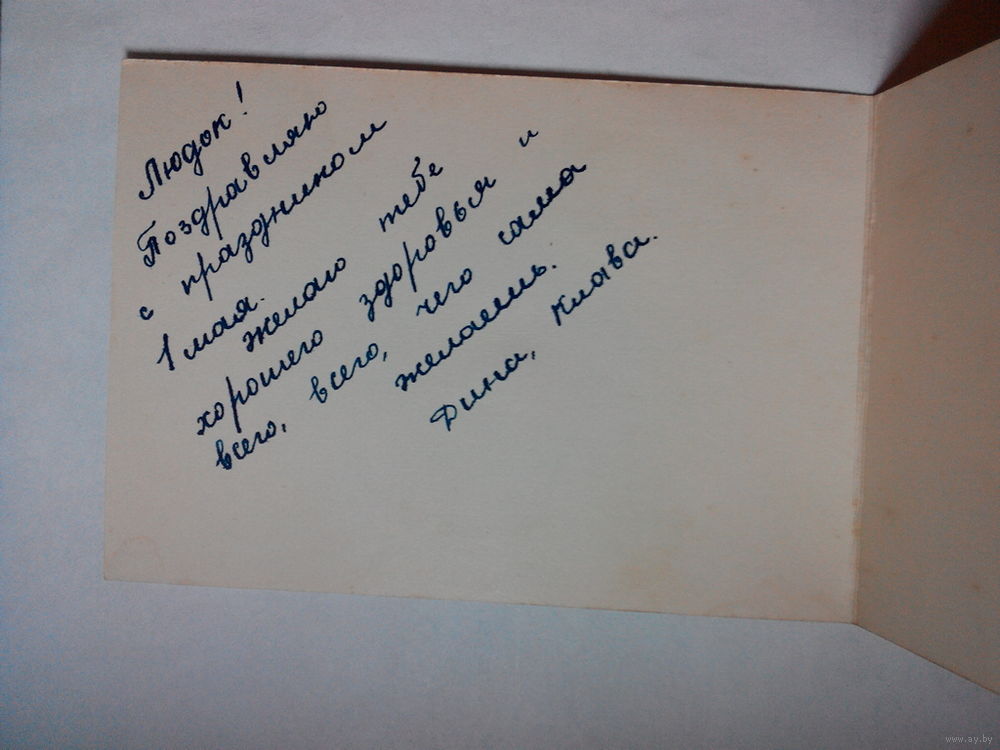 Людок!
Поздравляю
с праздником
1 мая.
желаю тебе
хорошего здоровья и
всего, всего, чего сама
желаешь.
Дина, Клава.
www.ay.by